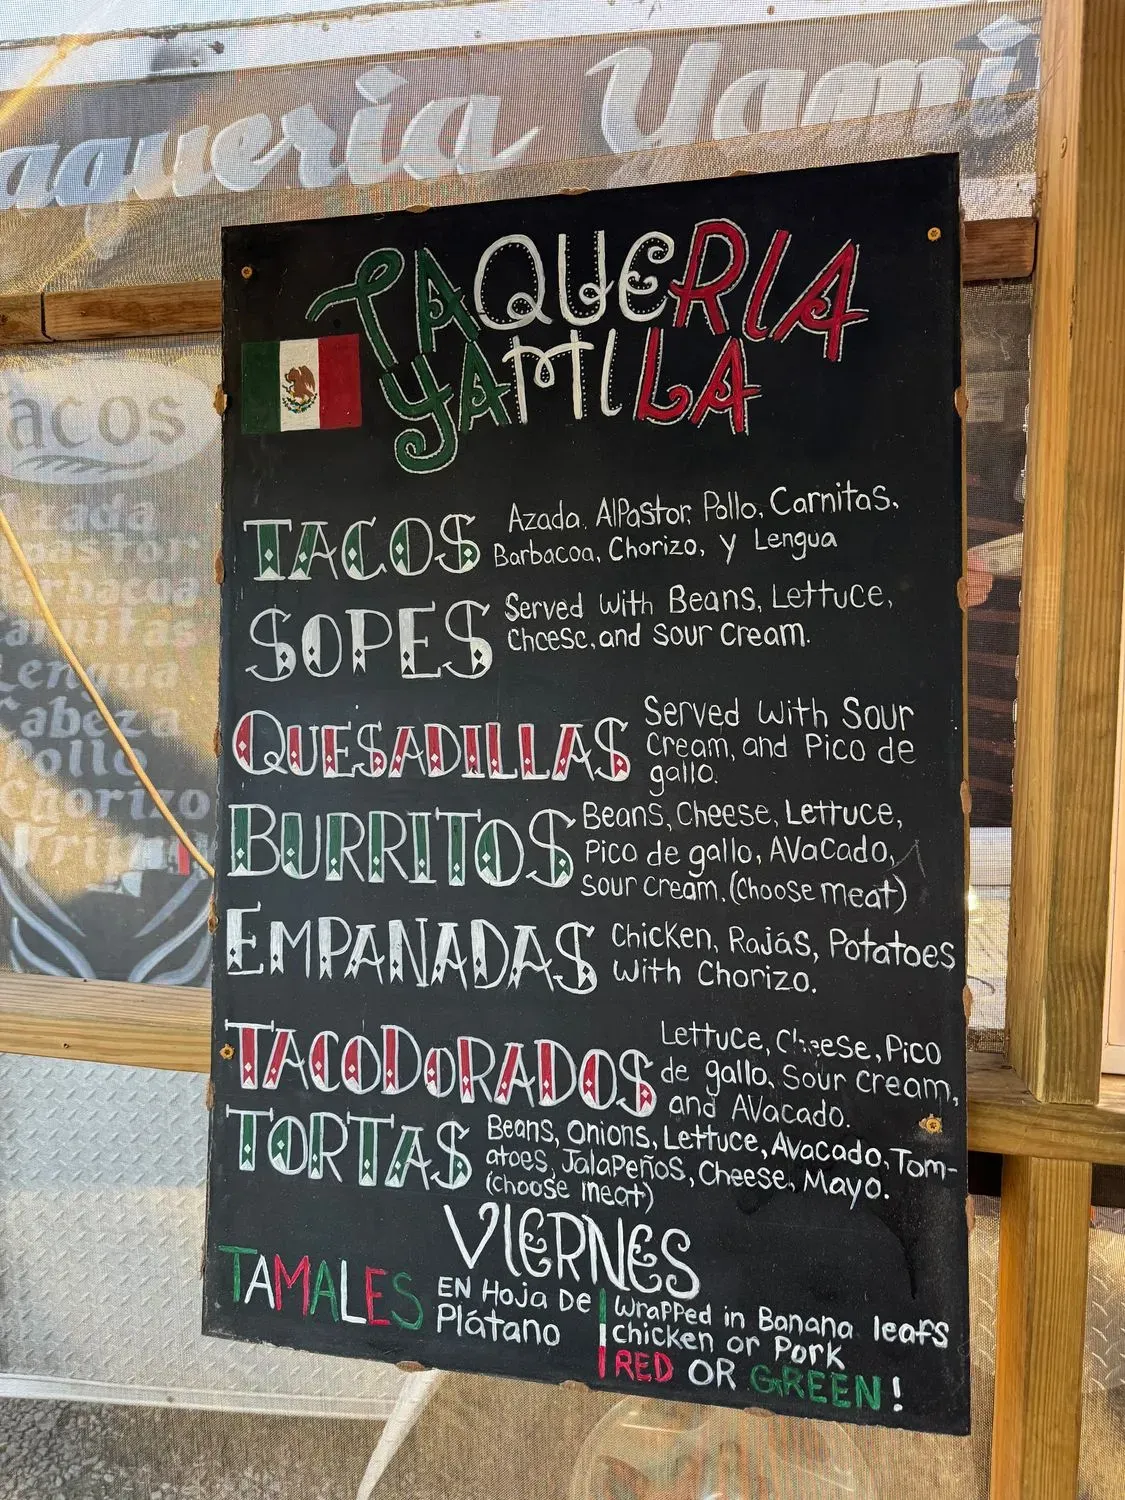 aqueria Yamil
TAQUERIA
YAMILA
TACOS Azada. AlPastor. Pollo, Carnitas,
Barbacoa, Chorizo, y Lengua
SOPES Served with Beans, Lettuce,
cheese, and Sour cream.
QUESADILLAS Served with Sour
Cream, and Pico de
gallo.
BURRITOS Beans, Cheese, Lettuce,
Pico de gallo, Avacado,
Sour cream. (choose meat)
EMPANADAS Chicken, Rajás, Potatoes
with Chorizo.
TACODORADOS Lettuce, Cheese, Pico
de gallo, Sour cream,
and Avacado.
TORTAS Beans, onions, Lettuce, Avacado, Tom-
atoes, Jalapeños, Cheese, Mayo.
(choose meat)
VIERNES
TAMALES EN Hoja De
Plátano
Wrapped in Banana leafs
chicken or Pork
RED OR GREEN!
acos
Azada
pastor
arbacoa
arnitas
Lengua
Cabeza
Pollo
Chorizo